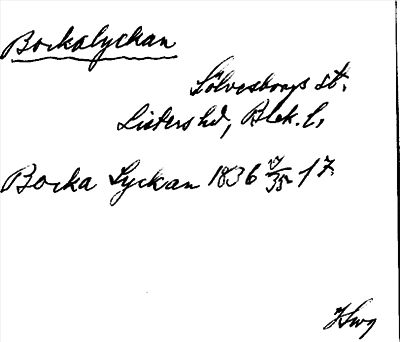 Bockalyckan
Sölvesborgs st.
Listers hd, Blek. l.
Bocka Lyckan 1836 17/35 f 7.